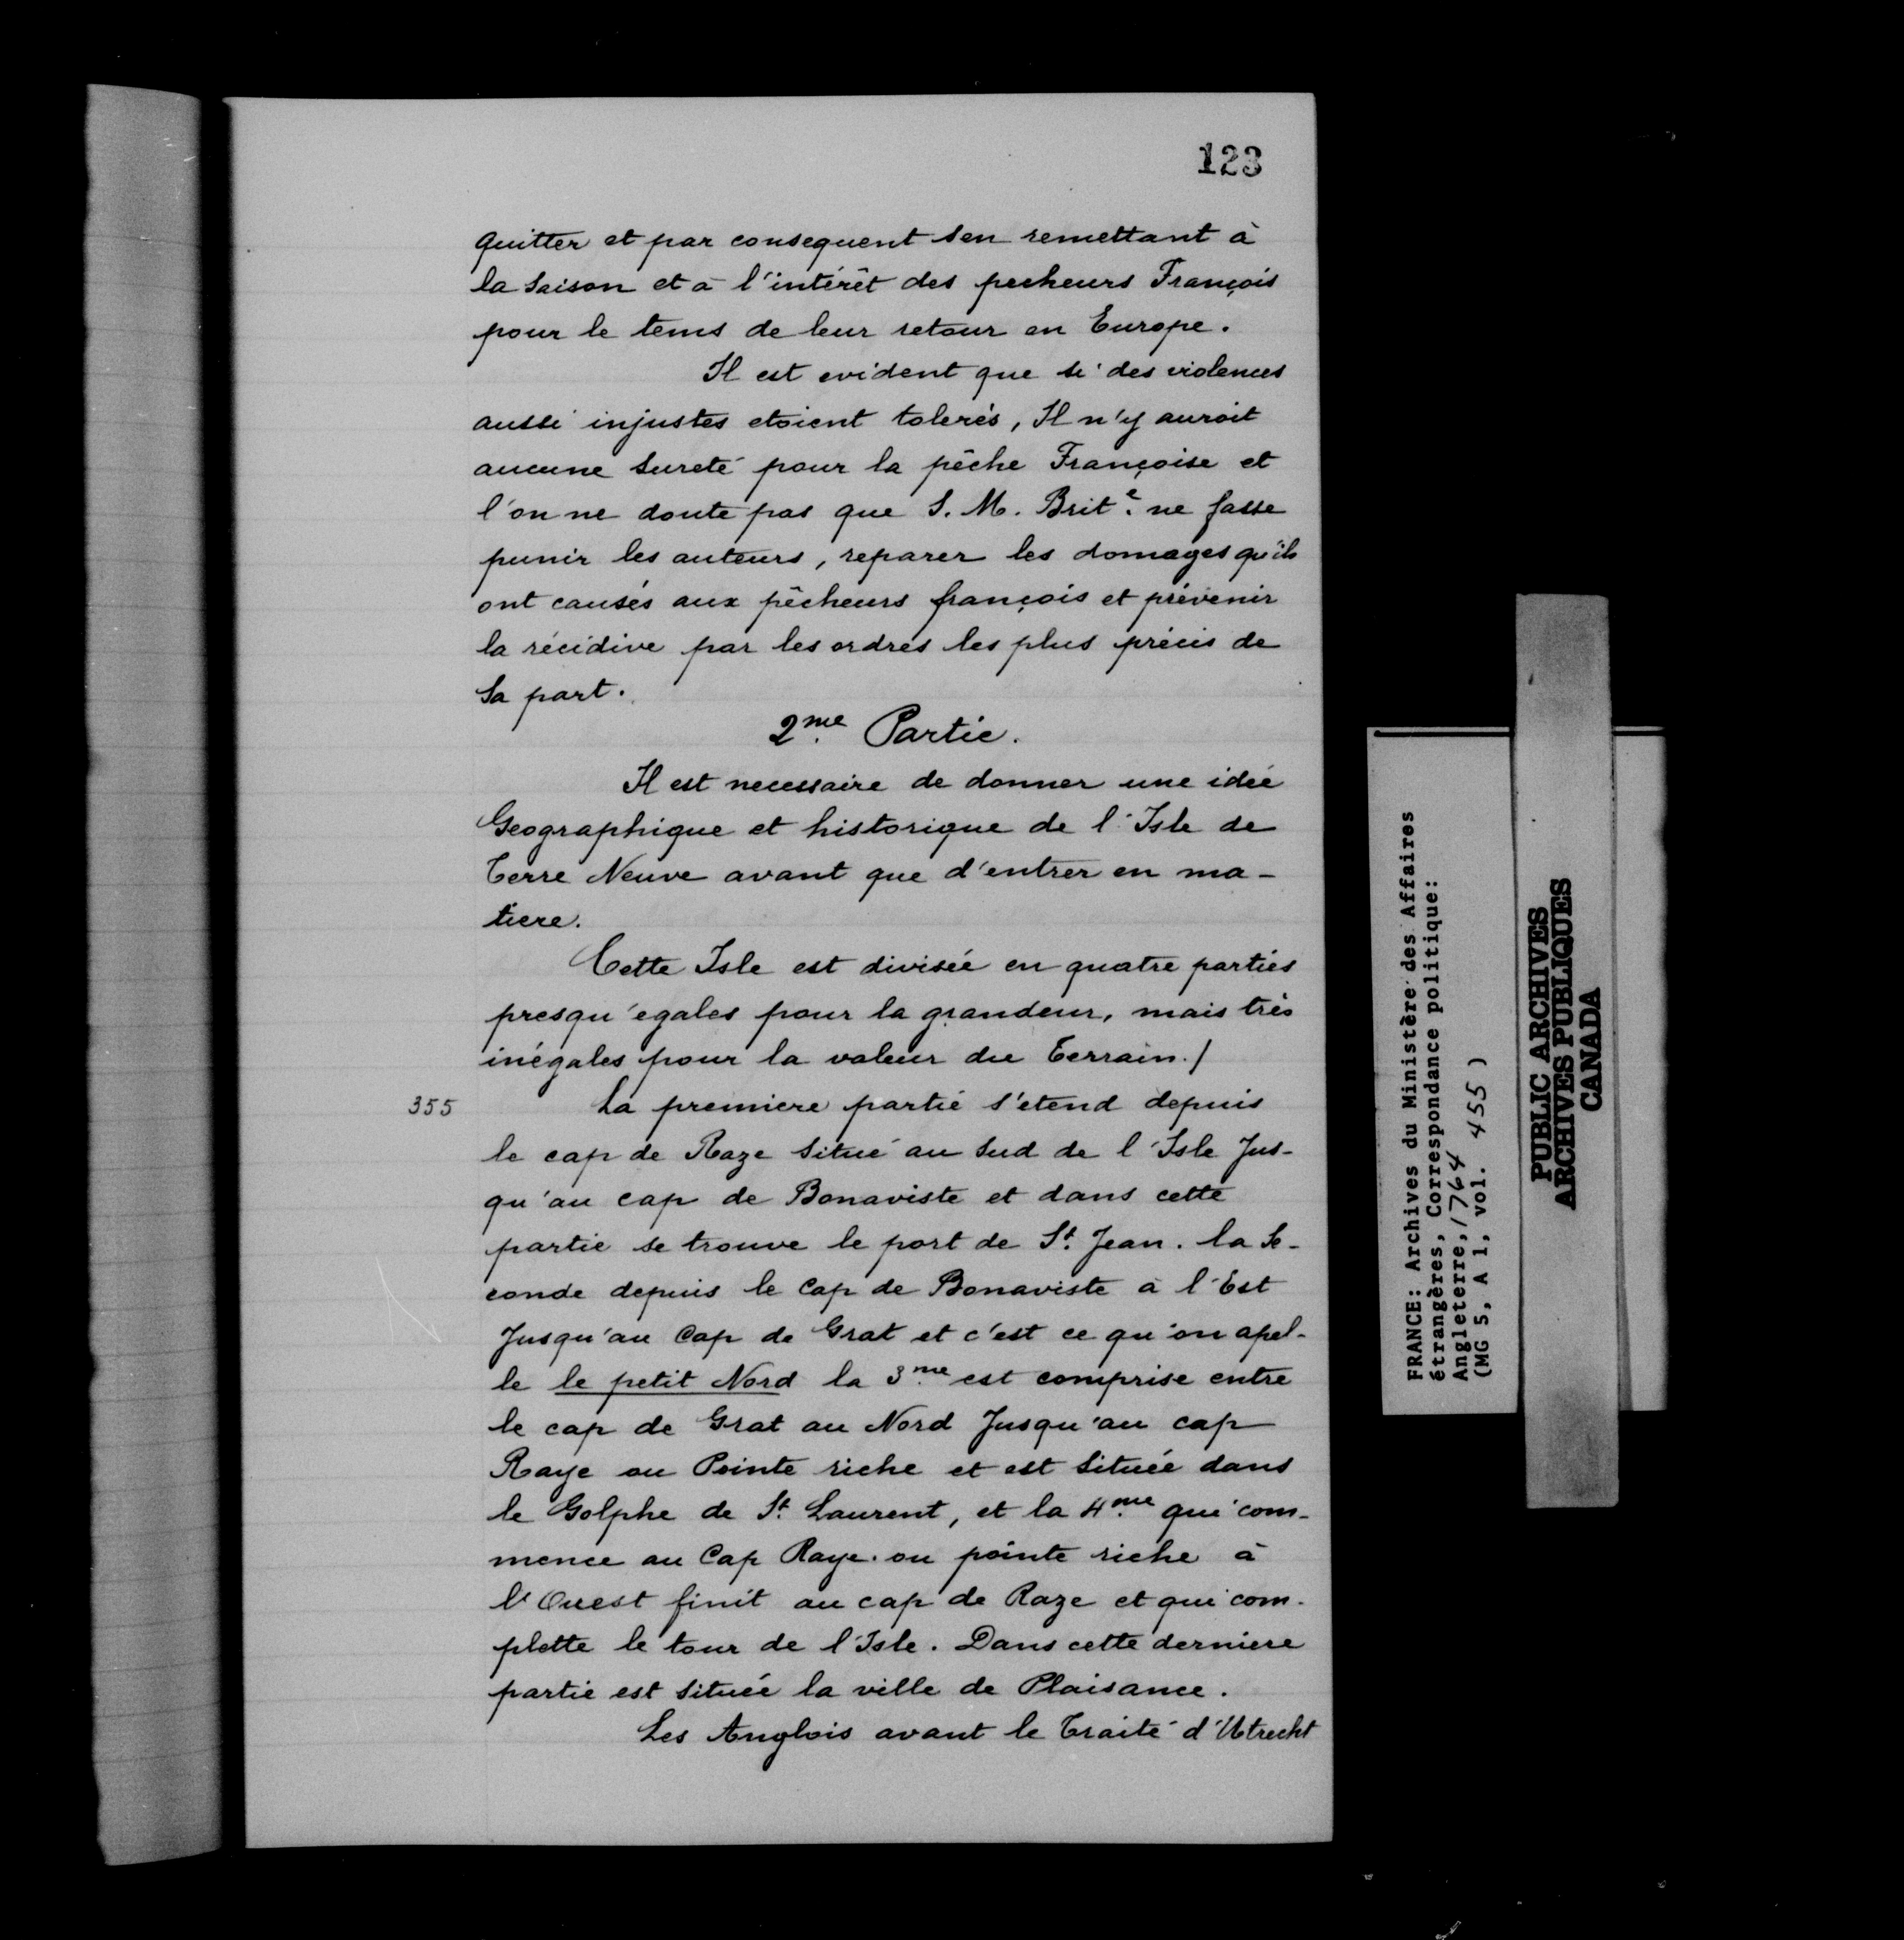 123
quitter et par consequent s'en remettant à
la saison et à l'intérêt des pecheurs François
pour le tems de leur retour en Europe.
Il est evident que si des violences
aussi injustes etoient tolerés, Il n'y auroit
aucune sureté pour la pêche Françoise et
l'on ne doute pas que S. M. Brit.e ne fasse
punir les auteurs, reparer les domages qu'ils
ont causés aux pêcheurs françois et prévenir
la récidive par les ordres les plus précis de
sa part.
2.me Partie.
Il est necessaire de donner une idée
Geographique et historique de l'Isle de
Terre Neuve avant que d'entrer en ma-
tiere.
Cette Isle est divisée en quatre parties
presqu'egales pour la grandeur, mais très
inégales pour la valeur du Terrain./
355 La premiere partie s'etend depuis
le cap de Raze situé au Sud de l'Isle Jus-
qu'au cap de Bonaviste et dans cette
partie se trouve le port de St. Jean. la Se-
conde depuis le Cap de Bonaviste à l'Est
Jusqu'au Cap de Grat et c'est ce qu'on apel-
le le petit Nord la 3.me est comprise entre
le cap de Grat au Nord Jusqu'au cap
Raye ou Pointe riche et est située dans
le Golphe de St. Laurent, et la 4.me qui com-
mence au Cap Raye ou pointe riche à
l'Ouest finit au cap de Raze et qui com-
plette le tour de l'Isle. Dans cette derniere
partie est située la ville de Plaisance.
Les Anglois avant le Traité d'Utrecht
FRANCE: Archives du Ministère des Affaires
étrangères, Correspondance politique:
Angleterre, 1764
(MG 5, A 1, vol. 455)
PUBLIC ARCHIVES
ARCHIVES PUBLIQUES
CANADA